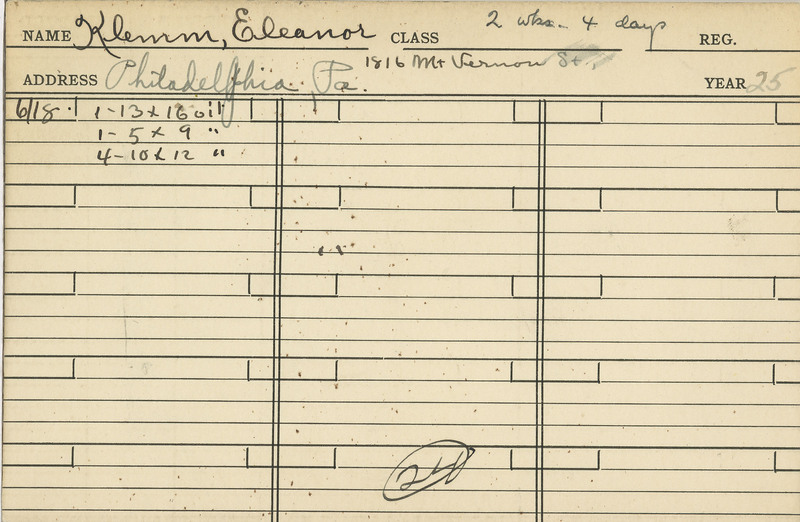 NAME Klemm, Eleanor CLASS 2 wks - 4 days REG.
ADDRESS Philadelphia Pa. 1816 Mt Vernon St. YEAR 25
6/18. 1-13 x 16 oil
1- 5 x 9 "
4-10 x 12 "
24